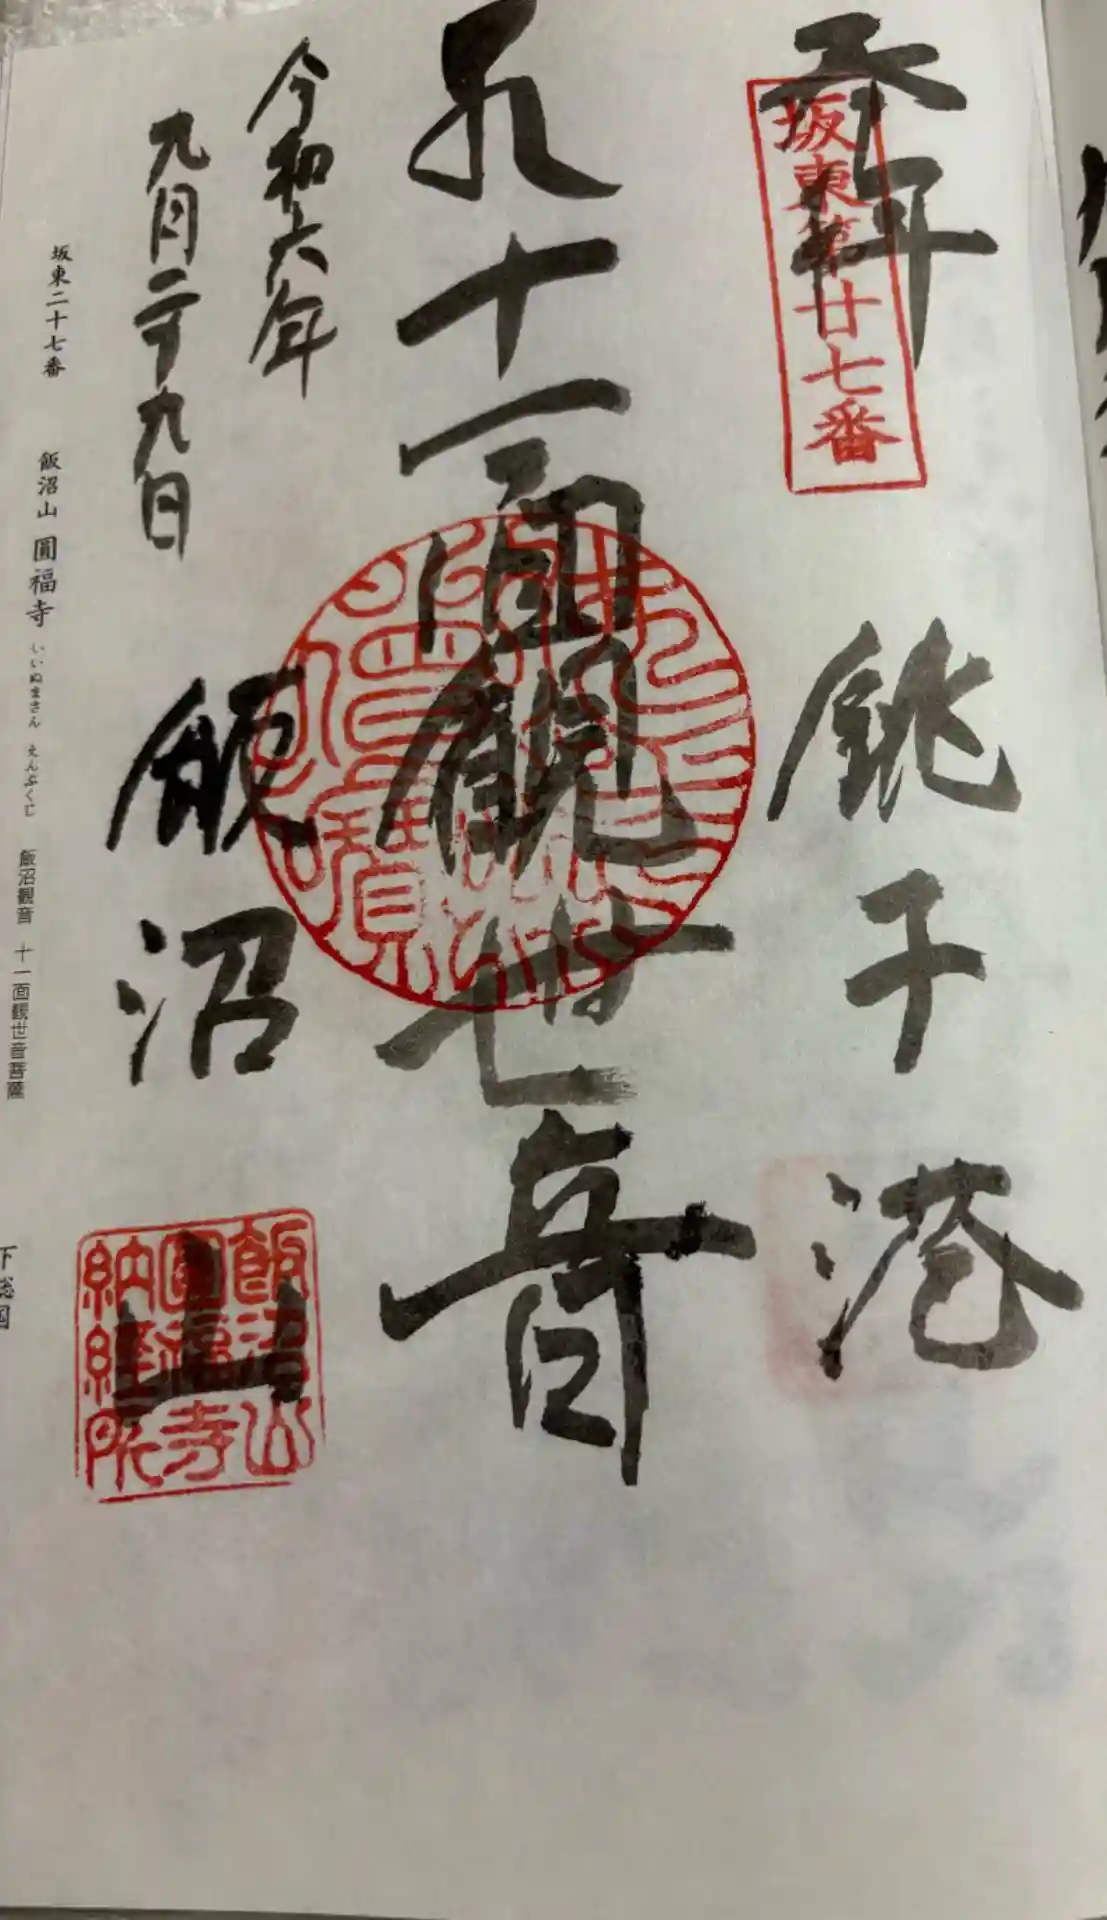 奉拝
坂東第廿七番
銚子港
十一面観世音
令和六年
九月二十九日
飯沼山
飯沼山
圓福寺
納経所
坂東二十七番 飯沼山 圓福寺 いいぬまさん えんぷくじ 飯沼観音 十一面観世音菩薩
下総国